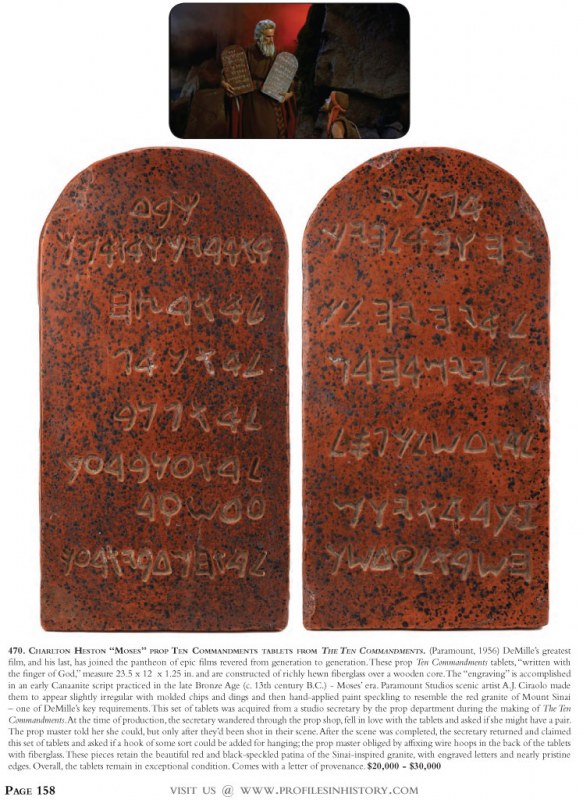 470. CHARLTON HESTON “MOSES” PROP TEN COMMANDMENTS TABLETS FROM THE TEN COMMANDMENTS. (Paramount, 1956) DeMille’s greatest
film, and his last, has joined the pantheon of epic films revered from generation to generation. These prop Ten Commandments tablets, “written with
the finger of God,” measure 23.5 x 12 x 1.25 in. and are constructed of richly hewn fiberglass over a wooden core. The “engraving” is accomplished
in an early Canaanite script practiced in the late Bronze Age (c. 13th century B.C.) – Moses’ era. Paramount Studios scenic artist A.J. Ciraolo made
them to appear slightly irregular with molded chips and dings and then hand-applied paint speckling to resemble the red granite of Mount Sinai
– one of DeMille’s key requirements. This set of tablets was acquired from a studio secretary by the prop department during the making of The Ten
Commandments. At the time of production, the secretary wandered through the prop shop, fell in love with the tablets and asked if she might have a pair.
The prop master told her she could, but only after they’d been shot in their scene. After the scene was completed, the secretary returned and claimed
this set of tablets and asked if a hook of some sort could be added for hanging; the prop master obliged by affixing wire hoops in the back of the tablets
with fiberglass. These pieces retain the beautiful red and black-speckled patina of the Sinai-inspired granite, with engraved letters and nearly pristine
edges. Overall, the tablets remain in exceptional condition. Comes with a letter of provenance. $20,000 – $30,000
PAGE 158 VISIT US @ WWW.PROFILESINHISTORY.COM